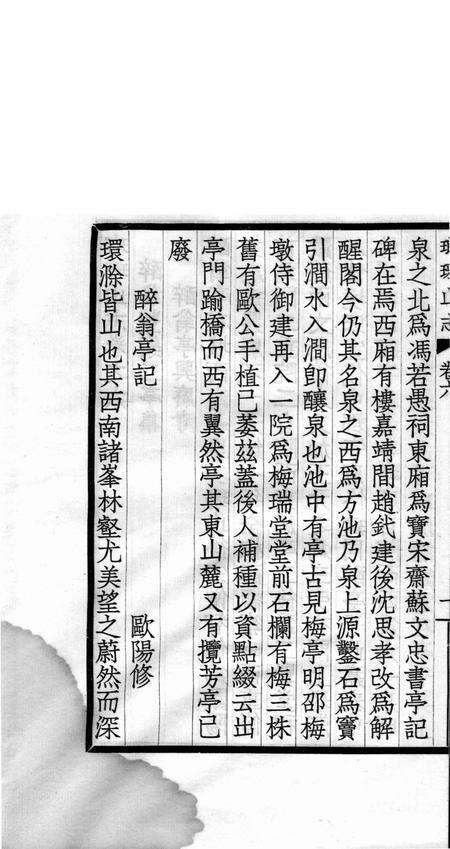 瑯琊山志 卷六
泉之北爲馮若愚祠東廂爲寶宋齋蘇文忠書亭記
碑在焉西廂有樓嘉靖間趙釴建後沈思孝改爲解
醒閣今仍其名泉之西爲方池乃泉上源鑿石爲竇
引澗水入澗卽釀泉也池中有亭古見梅亭明邵梅
墩侍御建再入一院爲梅瑞堂堂前石欄有梅三株
舊有歐公手植已萎茲蓋後人補種以資點綴云出
亭門踰橋而西有翼然亭其東山麓又有攬芳亭已
廢
醉翁亭記 歐陽修
環滁皆山也其西南諸峯林壑尤美望之蔚然而深